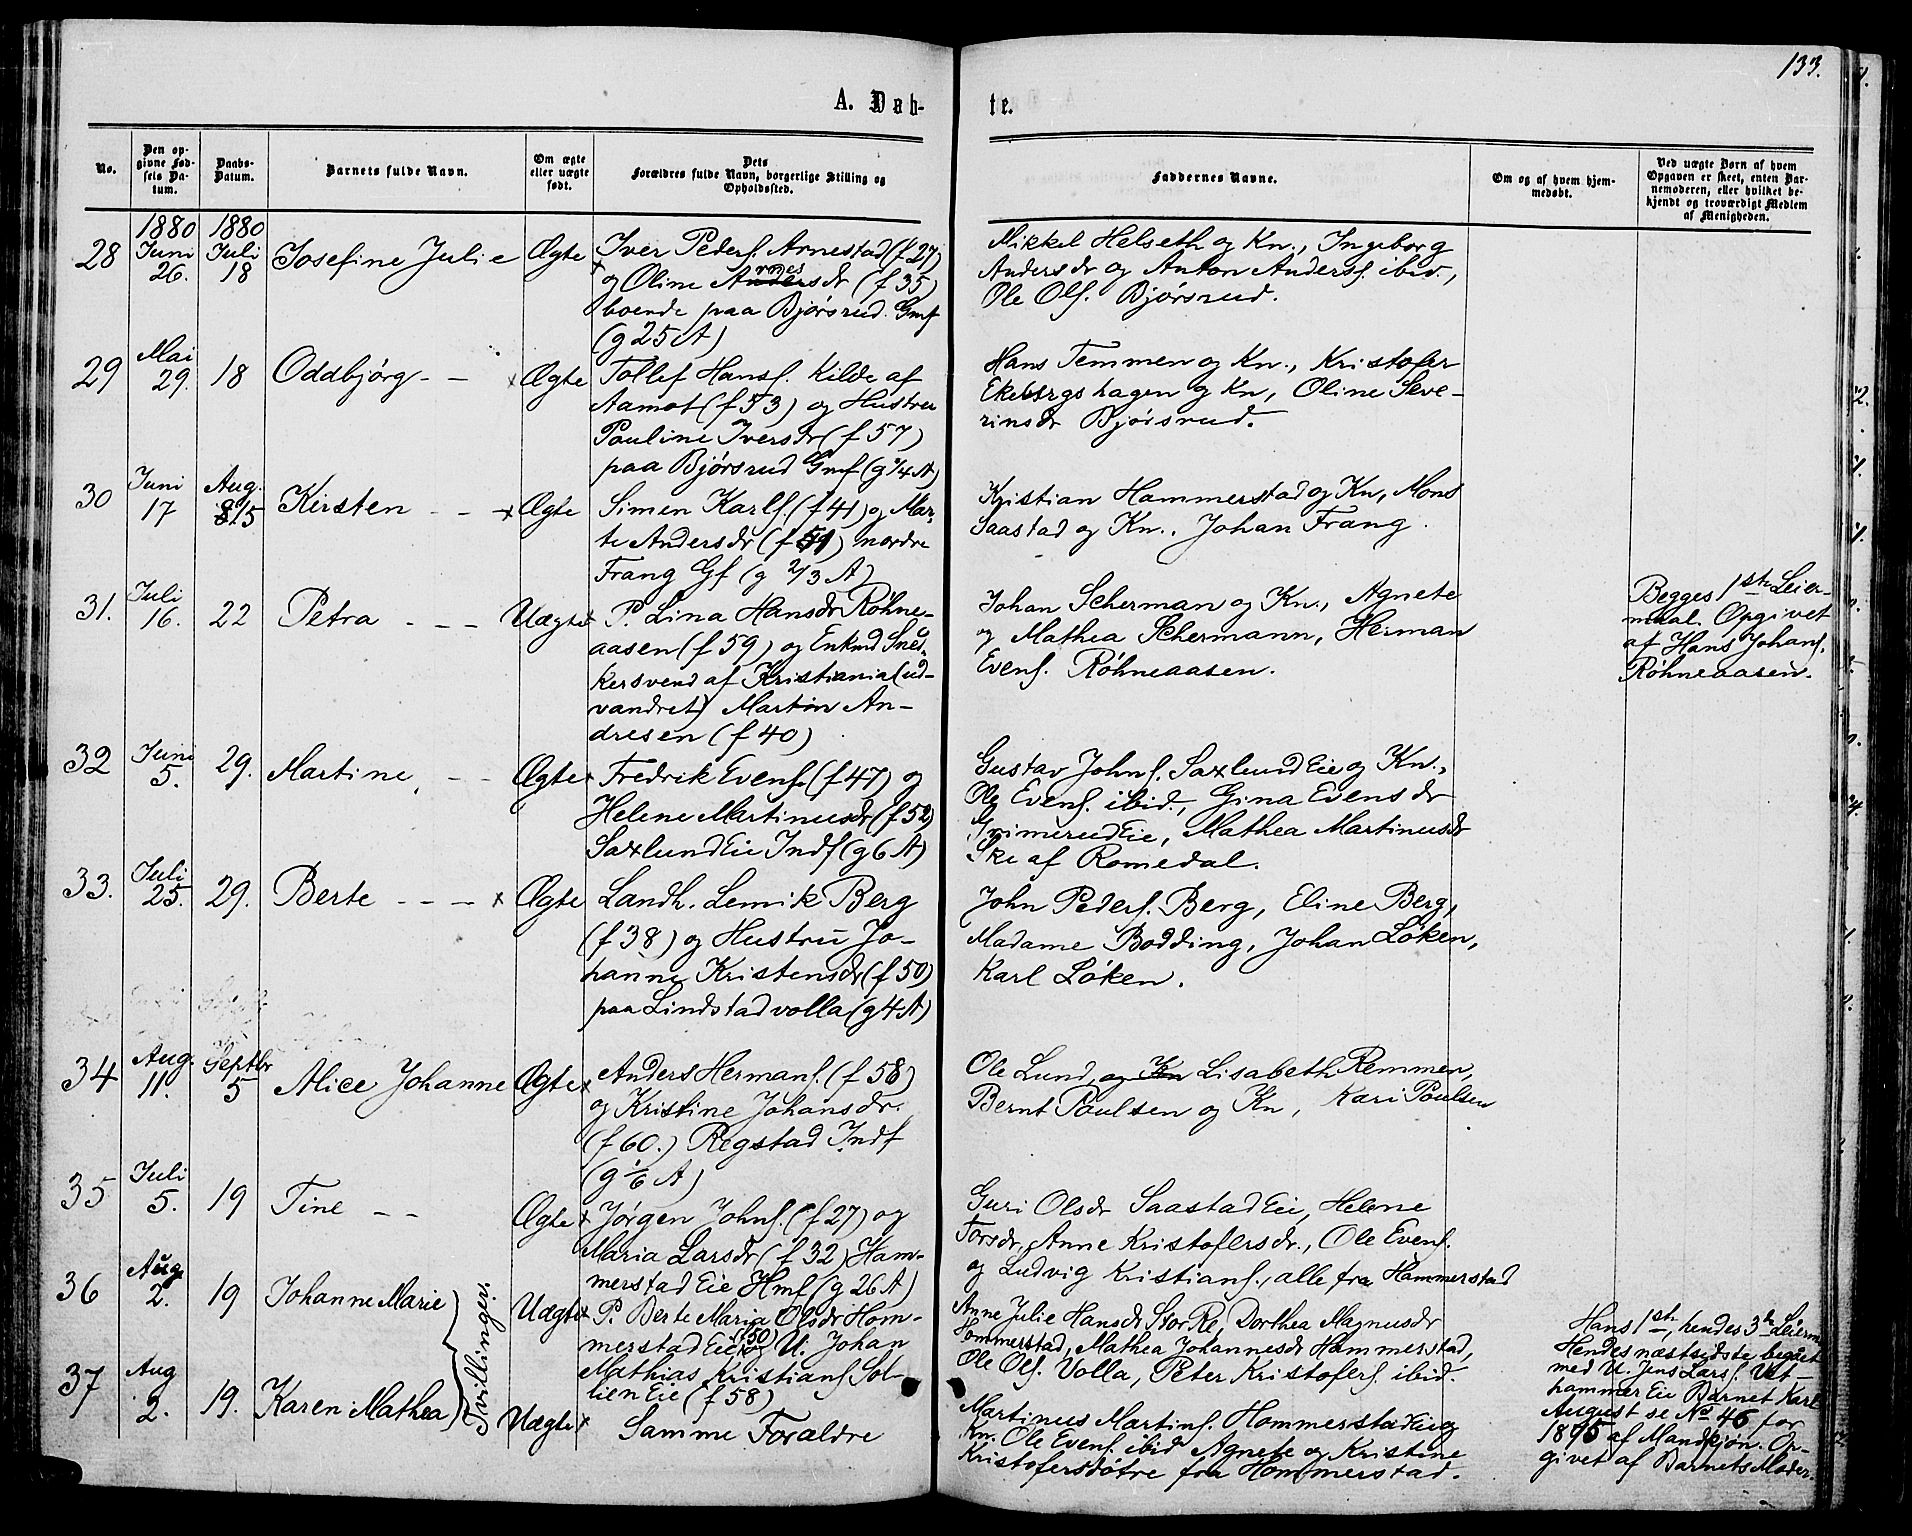 133.
A. Døb-
te.
No.
Den op-
givne Fød-
sels Da-
tum.
Daabs-
Datum.
Barnets fulde Navn.
Om ægte
eller uægte
født.
Dets
Forældres fulde Navn, borgerlige Stilling og
Opholdssted.
Faddernes Navne.
Om og af hvem hjem-
medøbt.
Ved uægte Børn af hvem
Opgaven er skeet, enten Bar-
nemoderen, eller hvilket be-
kjendt og troværdigt Medlem
af Menigheden.
1880 1880
28 Juni 26. Juli 18 Josefine Julie Ægte
Iver Peders. Arnestad (f 27)
og Oline Arnesdr (f 35)
boende paa Bjørsrud Gmf
(g 25 A)
Mikkel Helseth og Kn., Ingeborg
Andersdr og Anton Anders. ibid.,
Ole Ols. Bjørsrud.
29 Mai 29. 18 Oddbjørg - - Ægte
Tollef Hans. Kilde af
Aamot (f 53) og Hustru
Pauline Iversdr (f 57)
paa Bjørsrud Gmf (g 1/4 A)
Hans Temmen og Kn., Kristofer
Ekebergshagen og Kn, Oline Seve-
rinsdr Bjørsrud.
30 Juni 17 Aug. 15 Kirsten - - Ægte
Simen Karls. (f 41) og Mar-
te Andersdr (f 51) nordre
Frang Gf (g 2/3 A)
Kristian Hammerstad og Kn, Mons
Saastad og Kn., Johan Frang.
31. Juli 16. 22 Petra - - - Uægte
P. Lina Hansdr Røhne-
aasen (f 59) og Enkmd Sned-
kersvend af Kristiania (ud-
vandret) Martin An-
dresen (f 40)
Johan Scherman og Kn., Agnete
og Mathea Schermann, Herman
Evens. Røhneaasen.
Begges 1ste Leier-
maal. Opgivet
af Hans Johans.
Røhneaasen.
32 Juni 5. 29. Martine - - Ægte
Fredrik Evens. (f 47) og
Helene Martinusdr (f 52)
Saxlund Eie Indf (g 6 A)
Gustav Johns. Saxlund Eie og Kn.,
Ole Evens. ibid., Gina Evensdr
Grimerud Eie, Mathea Martinusdr
Ske af Romedal.
33. Juli 25. 29. Berte - - - Ægte
Landh. Lemik Berg
(f 38) og Hustru Jo-
hanne Kristensdr (f 50)
paa Lindstadvolla (g 4 A)
John Peders. Berg, Eline Berg,
Madame Bodding, Johan Løken,
Karl Løken.
34 Aug. 11. Septbr 5 Alice Johanne Ægte
Anders Hermans. (f 58)
og Kristine Johansdr.
(f 60.) Regstad Indf
(g 1/6 A)
Ole Lund, og Kn Lisabeth Remmen,
Bernt Paulsen og Kn, Kari Paulsen
35 Juli 5. 19 Tine - - Ægte
Jørgen Johns. (f 27) og
Maria Larsdr (f 32) Ham-
merstad Eie Hmf (g 26 A)
Guri Olsdr Saastad Eie, Helene
Torsdr, Anne Kristofersdr., Ole Evens.
og Ludvig Kristians., alle fra Hammerstad
36 Aug. 2. 19 Johanne Marie Uægte
Tvillinger.
P. Berte Maria Olsdr Hom-
merstad Eie (f 50) og U. Johan
Mathias Kristians. Sol-
lien Eie (f 58)
Anne Julie Hansdr Stor Re, Dorthea Magnusdr
Hommerstad, Mathea Johannesdr Hammerstad,
Ole Ols. Volla, Peter Kristofers. ibid.
37 Aug 2. 19. Karen Mathea Uægte
Samme Forældre
Martinus Martins. Hommerstad Eie og
Kn. Ole Evens. ibid Agnete og Kristine
Kristofersdøtre fra Hommerstad.
Hans 1ste, hendes 3die Leierm.
Hendes næstsidste begaaet
med U. Jens Lars. Vet-
hammer Eie Barnet Karl
August se No 46 for
1875 af Mandkjøn. Op-
givet af Barnets Moder.